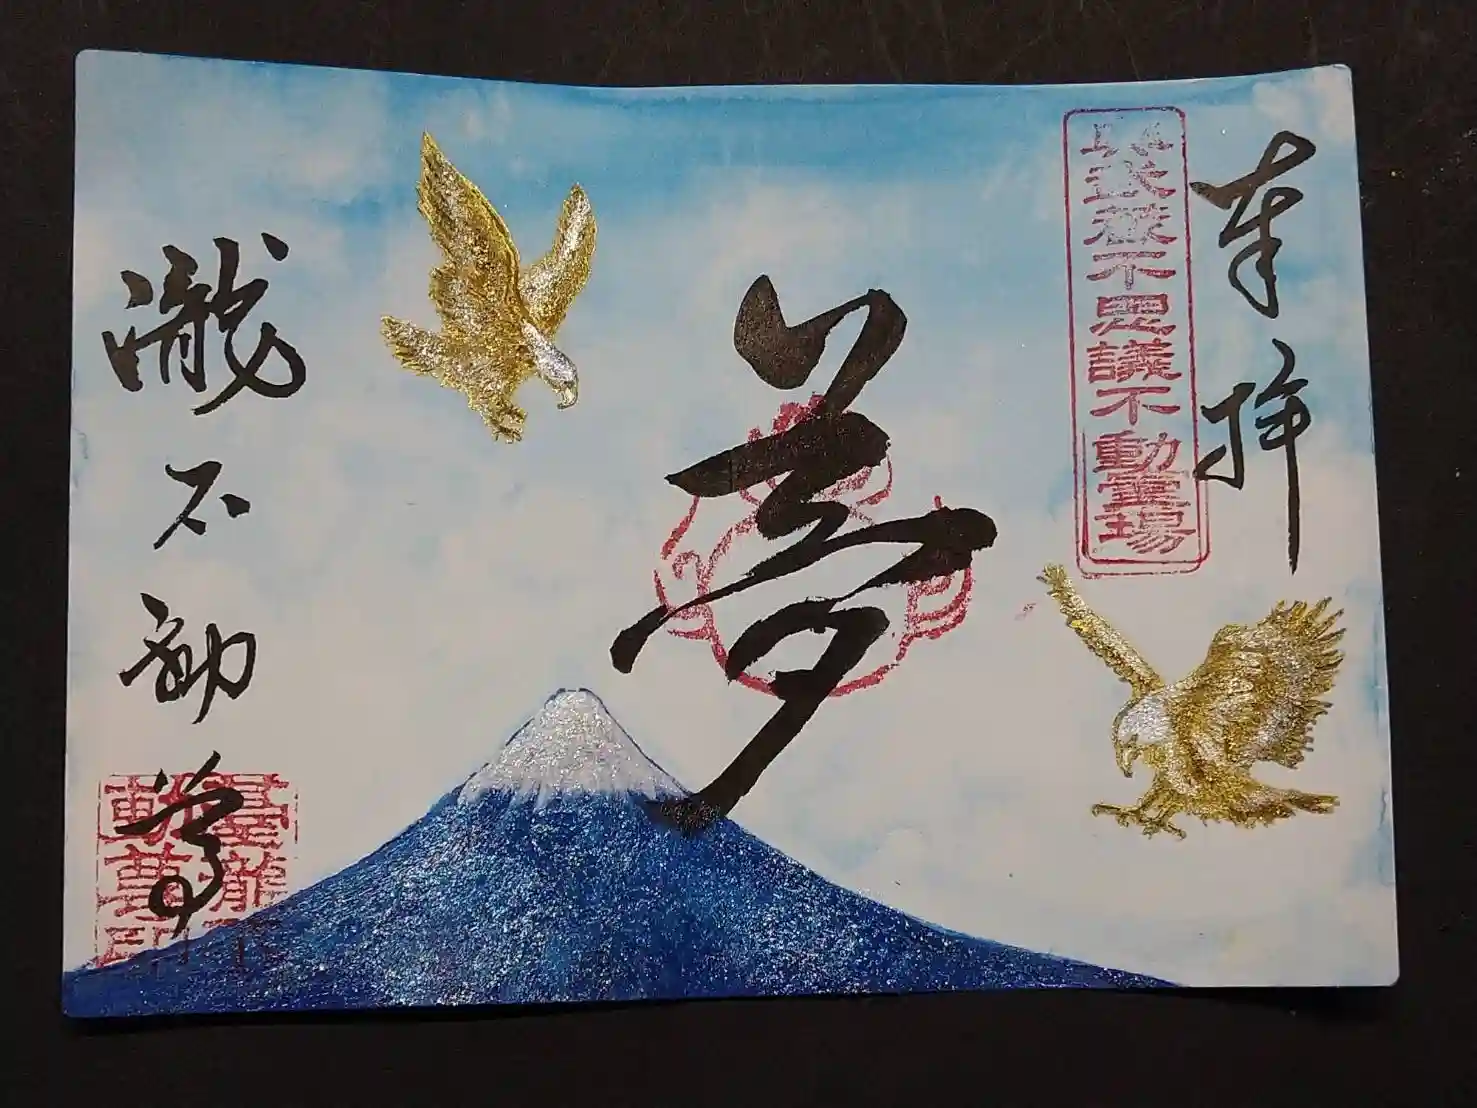 奉拝
武蔵不思議不動霊場
夢
瀧不動尊